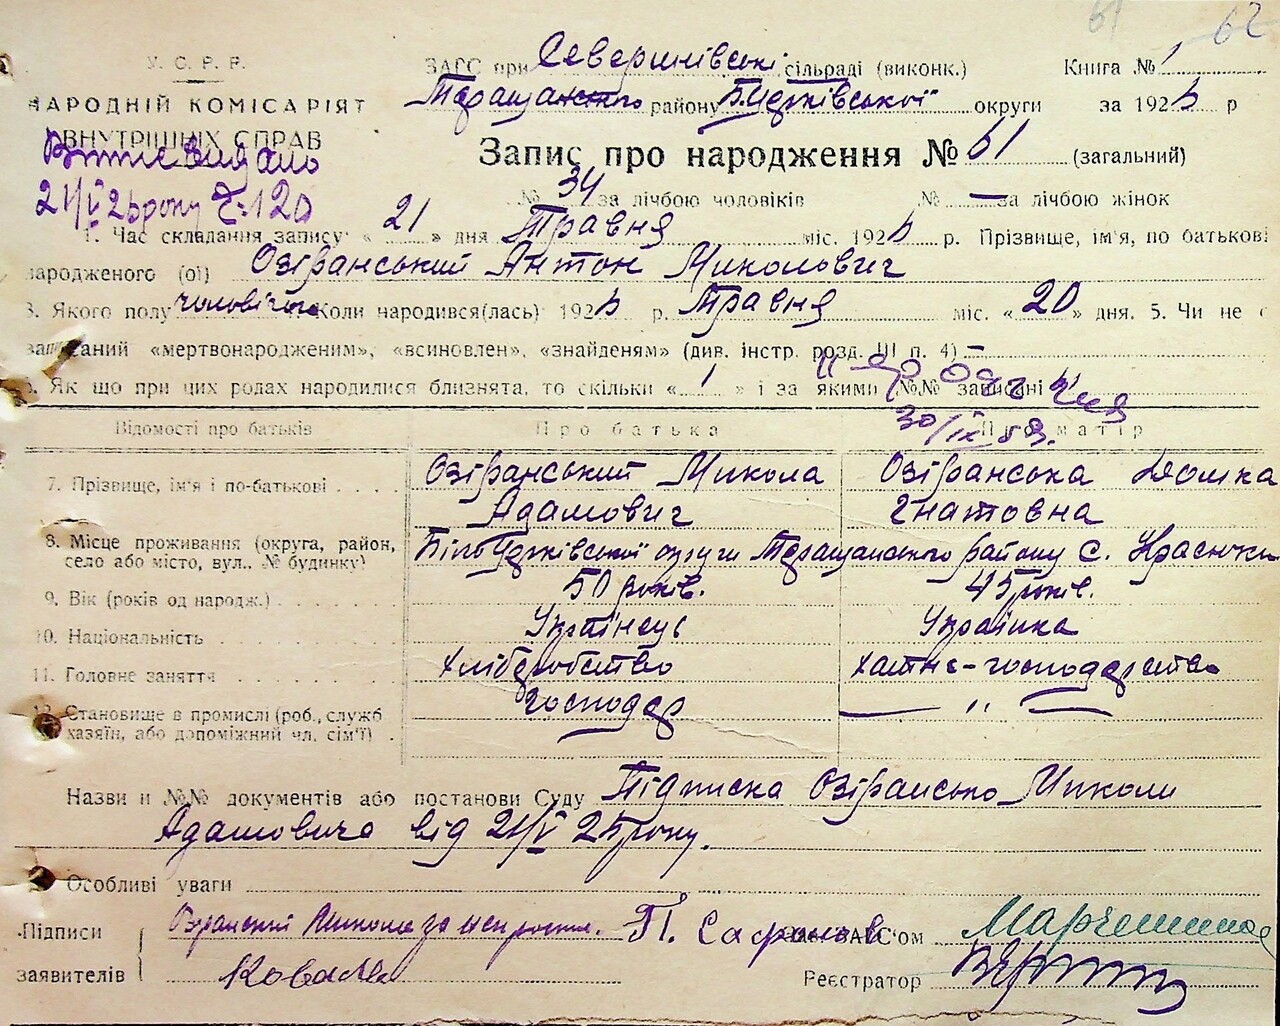 62
У. С. Р. Р.
НАРОДНІЙ КОМІСАРІЯТ
ВНУТРІШНІХ СПРАВ
ЗАГС при Северинівські сільраді (виконк.) Книга № 1
Таращанского району Б.Церківської округи за 1925 р
Запис про народження № 61 (загальний)
№ 34 за лічбою чоловіків № — за лічбою жінок
21/V 25 року № 120
1. Час складання запису: « 21 » дня Травня міс. 1925 р. Прізвище, ім'я, по батькові
народженого (ої) Озіранський Антон Миколович
3. Якого полу чоловічого Коли народився(лась) 1925 р. Травня міс. « 20 » дня. 5. Чи не є
записаний «мертвонародженим», «всиновлен», «знайденям» (див. інстр. розд. III п. 4) —
6. Як що при цих родах народилися близнята, то скільки « 1 » і за якими №№ записані
30/IX 59.
Відомості про батьків Про батька Про матір
7. Прізвище, ім'я і по-батькові Озіранський Микола Озіранська Домка
Адамович Гнатовна
8. Місце проживання (округа, район, село або місто, вул., № будинку) БілоЦерківської округи Таращанского району С. Красюки
9. Вік (років од народж.) 50 років. 45 років.
10. Національність Українець Українка
11. Головне заняття хліборобство хатнє-господарство
12. Становище в промислі (роб., служб господар — „ —
хазяїн, або допоміжний чл. сім'ї)
Назви и №№ документів або постанови Суду Підписка Озірансько Миколи
Адамовича від 21/V 25 року.
Особливі уваги
Підписи Микола за неписьмен. П. Сафронов ЗАГС'ом
заявителів Реєстратор